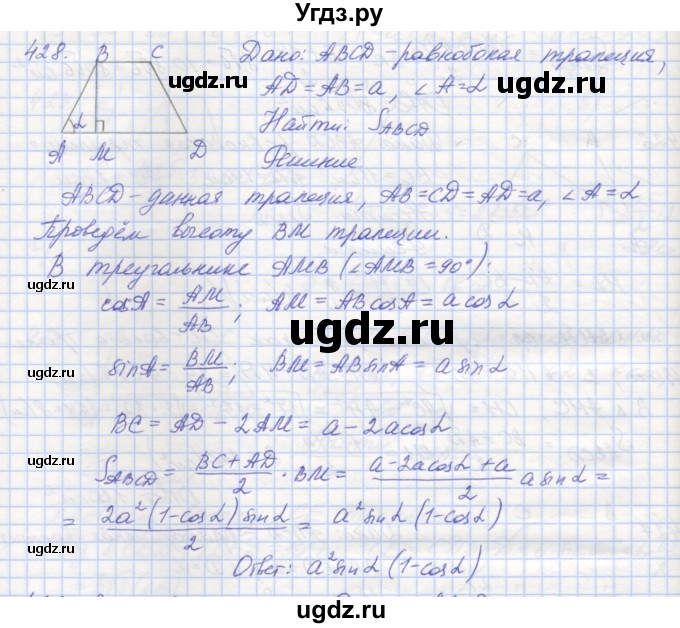 Угдз.ру
428. B C Дано: ABCD - равнобокая трапеция,
ugdz.ru
AD = AB = a, ∠A = α ugdz.ru
α Найти: S_ABCD
A M D Решение
ABCD - данная трапеция, AB = CD = AD = a, ∠A = α
ugdz.ru
Проведём высоту BM трапеции.
В треугольнике AMB (∠AMB = 90°):
ugdz.ru cosA = AM/AB; AM = AB cosA = a cosα
ugdz.ru
ugdz.ru sinA = BM/AB; BM = AB sinA = a sinα
BC = AD - 2AM = a - 2a cosα
ugdz.ru S_ABCD = (BC + AD)/2 · BM = (a - 2a cosα + a)/2 a sinα =
= (2a²(1 - cosα) sinα)/2 = a² sinα (1 - cosα)
ugdz.ru
Ответ: a² sinα (1 - cosα)
ugdz.ru